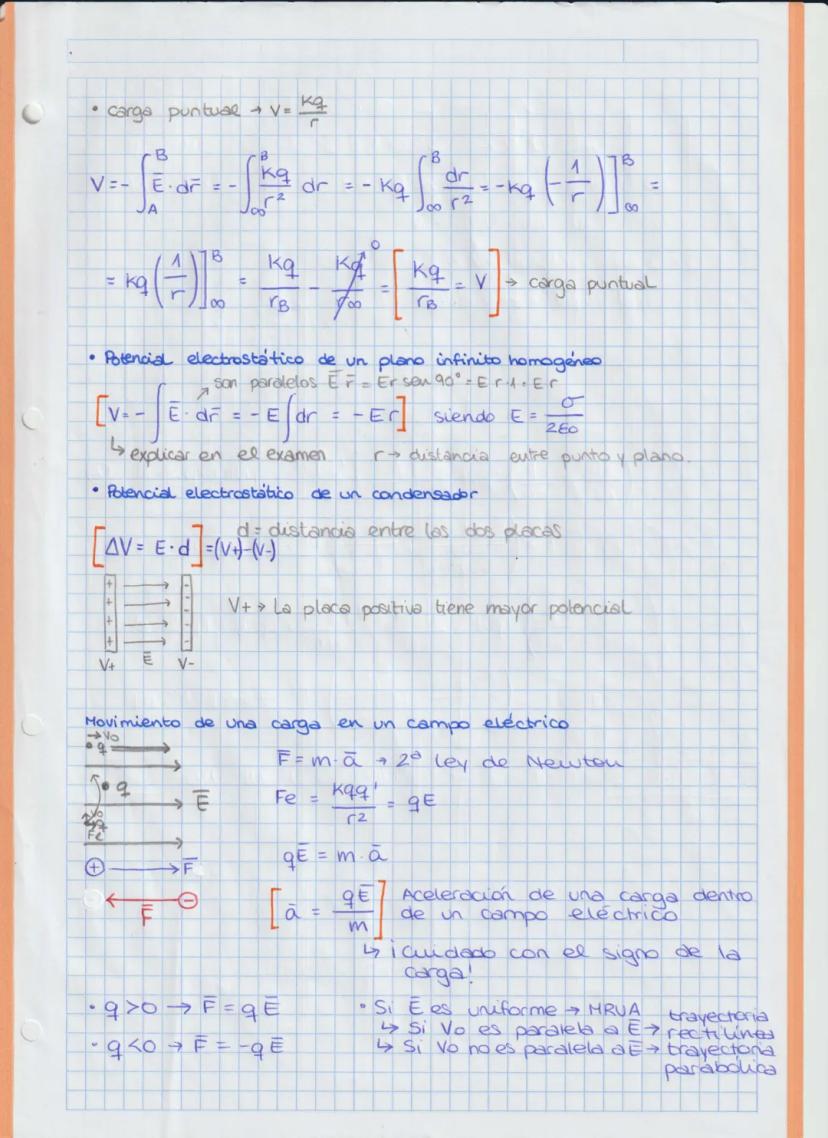 • carga puntual → V = Kq/r
V = - ∫_A^B Ē · dr̄ = - ∫_∞^B Kq/r² dr = - Kq ∫_∞^B dr/r² = - Kq (- 1/r)]_∞^B =
= Kq (1/r)]_∞^B = Kq/r_B - Kq/r_∞ 0 = [Kq/r_B = V] → carga puntual
• Potencial electrostático de un plano infinito homogéneo
son paralelos Ē r̄ = E r sen 90° = E r · 1 = E r
[V = - ∫ Ē · dr̄ = - E ∫ dr = - E r] siendo E = σ/2ε0
↳ explicar en el examen r → distancia entre punto y plano.
• Potencial electrostático de un condensador
d = distancia entre las dos placas
[ΔV = E · d] = (V+) - (V-)
+ -
+ -
+ -
+ -
V+ → La placa positiva tiene mayor potencial
V+ Ē V-
Movimiento de una carga en un campo eléctrico
→ Vo
• q
F̄ = m · ā → 2ª Ley de Newton
• q Ē
Fe = Kqq'/r² = qE
Fe
+ → F̄
qĒ = m · ā
F̄ ← -
[ā = qĒ/m] Aceleración de una carga dentro
de un campo eléctrico
↳ ¡Cuidado con el signo de la
carga!
• q > 0 → F̄ = q Ē
• q < 0 → F̄ = -q Ē
• Si Ē es uniforme → MRUA
↳ Si Vo es paralela a Ē → trayectoria rectilínea
↳ Si Vo no es paralela a Ē → trayectoria
parabólica